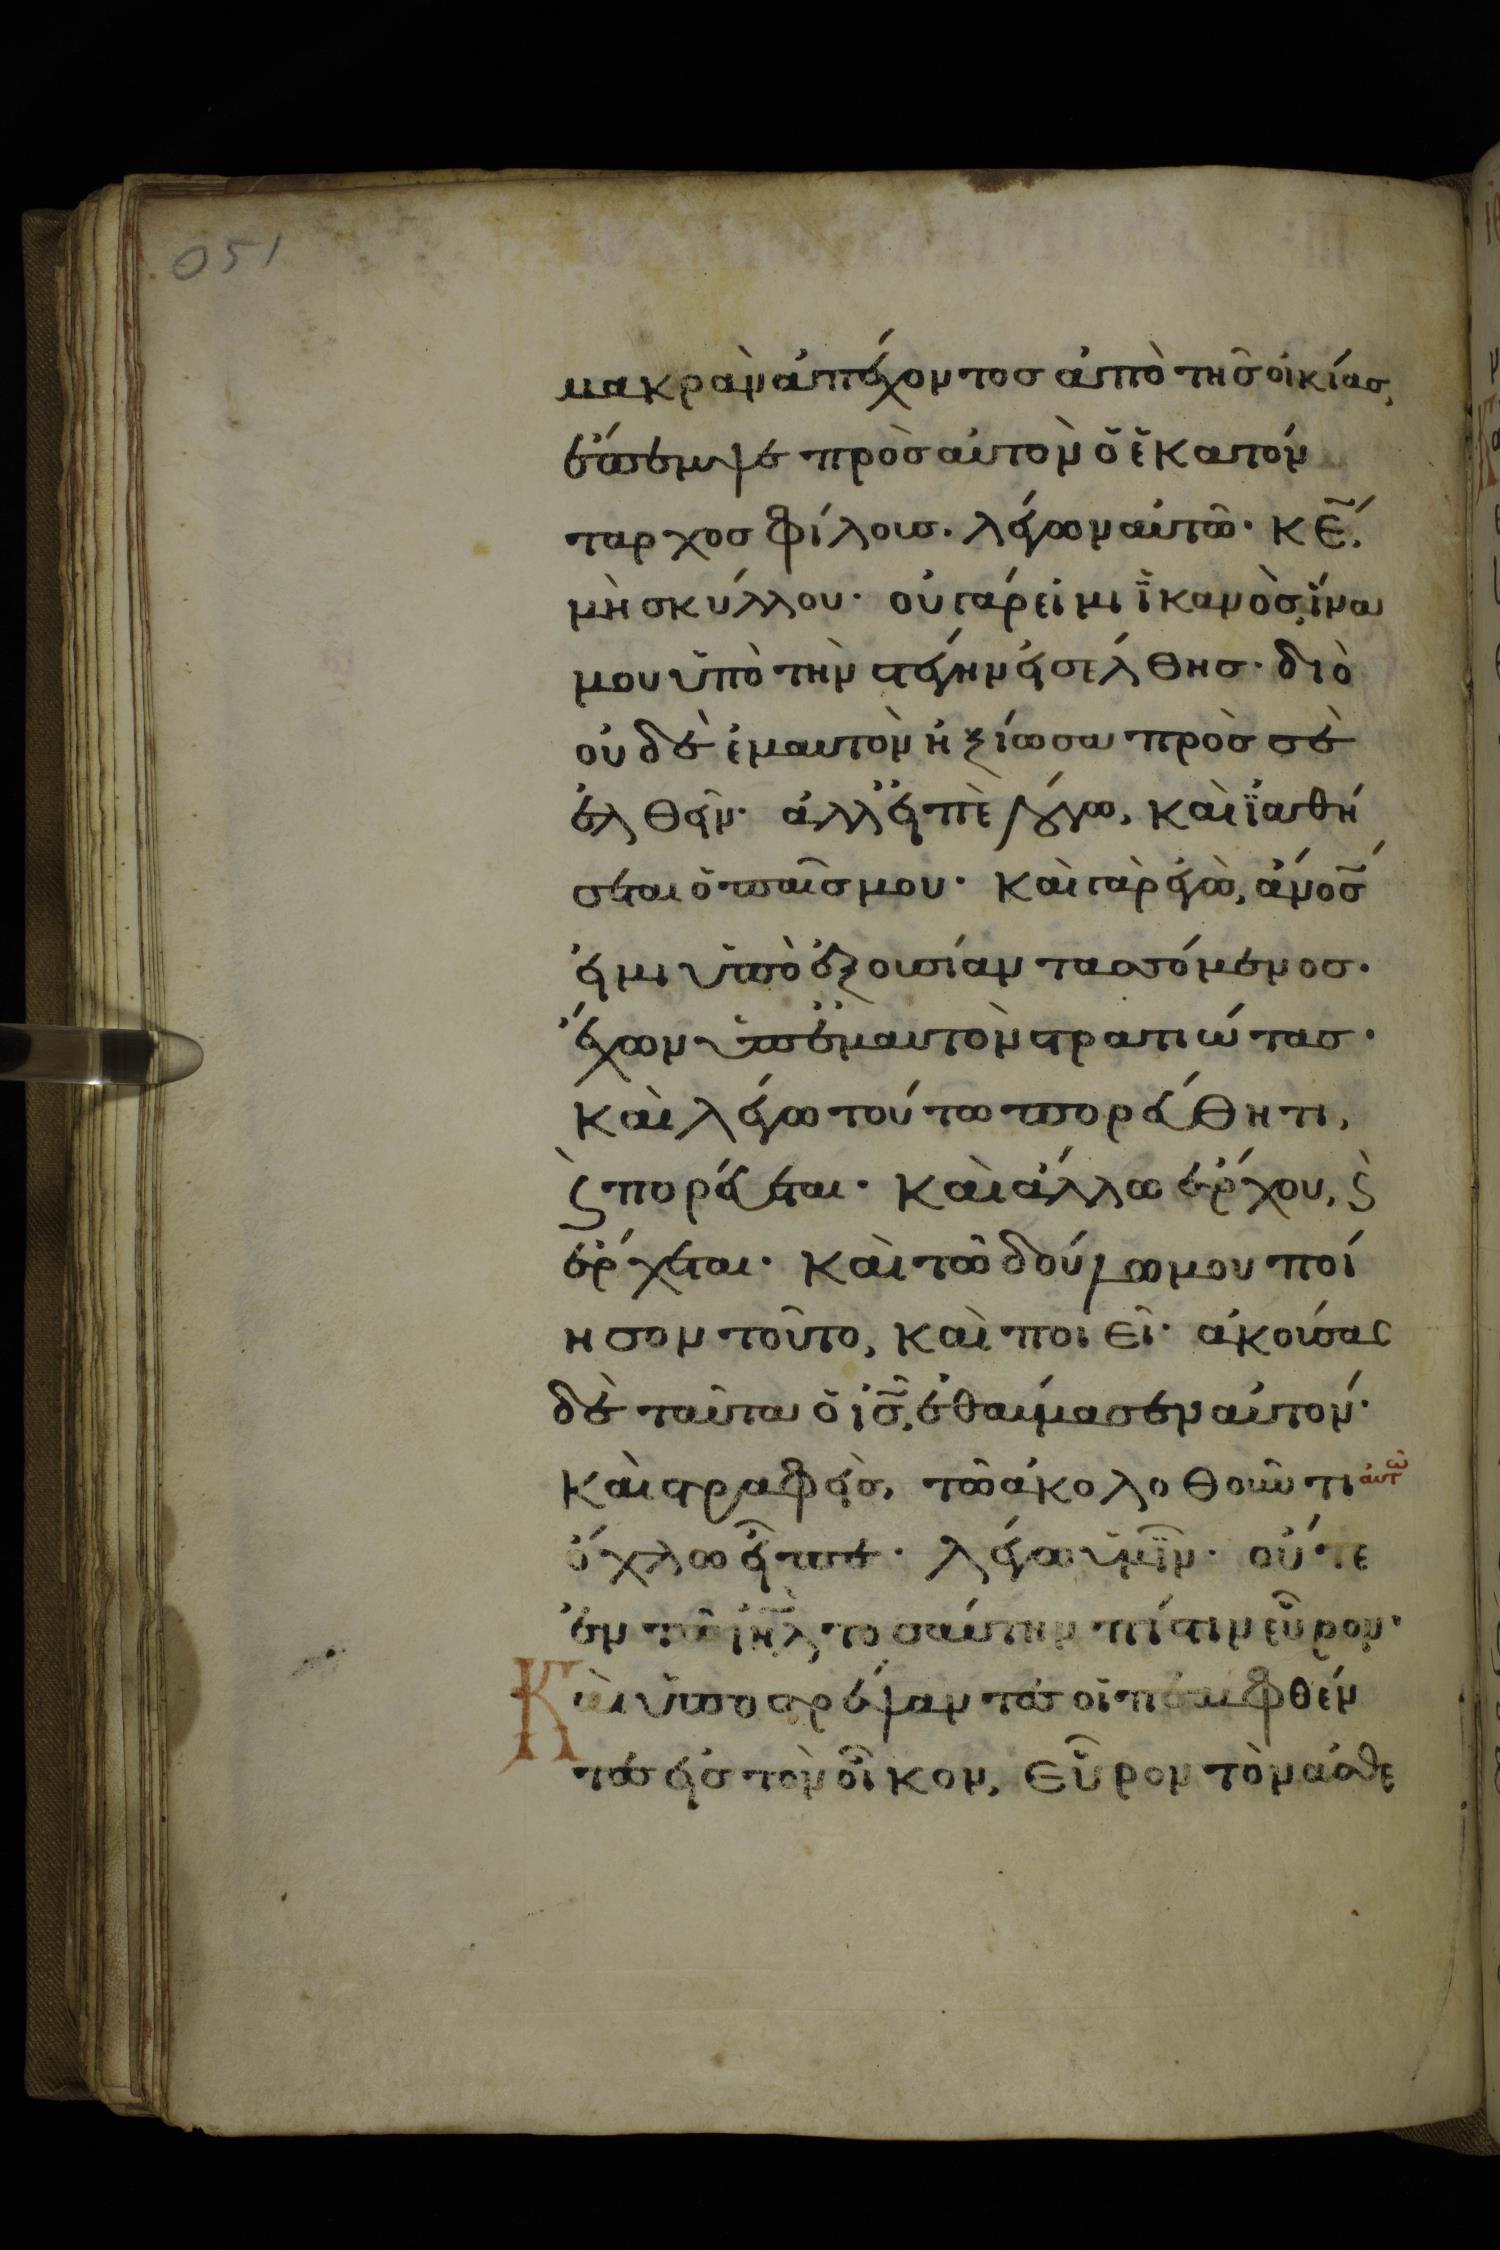 051
μακρὰν ἀπέχοντοσ ἀπὸ τῆσ οἰκίασ,
ἔπεμψε πρὸσ αὐτὸν ὁ ἑκατόν
ταρχοσ φίλουσ. λέγων αὐτῶ· κ̅ε̅,
μὴ σκύλλου· οὐ γάρ εἰμι ἱκανὸσ, ἵνα
μου ὑπὸ τὴν στέγην εἰσέλθησ· διὸ
οὐδὲ ἐμαυτὸν ἠξίωσα πρὸσ σὲ
ἐλθεῖν· ἀλλ' εἰπὲ λόγω, καὶ ἰαθή
σεται ὁ παῖσ μου· καὶ γὰρ ἐγὼ, ἄν̅ο̅σ̅
εἰμι ὑπὸ ἐξουσίαν τασσόμενοσ·
ἔχων ὑπ' ἐμαυτὸν στρατιώτασ·
καὶ λέγω τούτω πορεύθητι,
ϗ πορεύεται· καὶ ἄλλω ἔρχου, ϗ
ἔρχεται· καὶ τῶ δούλω μου ποί
ησον τοῦτο, καὶ ποιεῖ· ἀκούσας
δὲ ταῦτα ὁ ι̅σ̅, ἐθαύμασεν αὐτόν·
καὶ στραφεὶσ, τῶ ἀκολουθοῦντι αὐτῶ
ὄχλω εἶπε· λέγω ὑμῖν· οὔτε
ἐν τῶ ι̅η̅λ̅ τοσαύτην πίστιν εὗρον·
Καὶ ὑποστρέψαντεσ οἱ πεμφθέν
τεσ εἰσ τὸν οἶκον, εὗρον τὸν ἀσθε